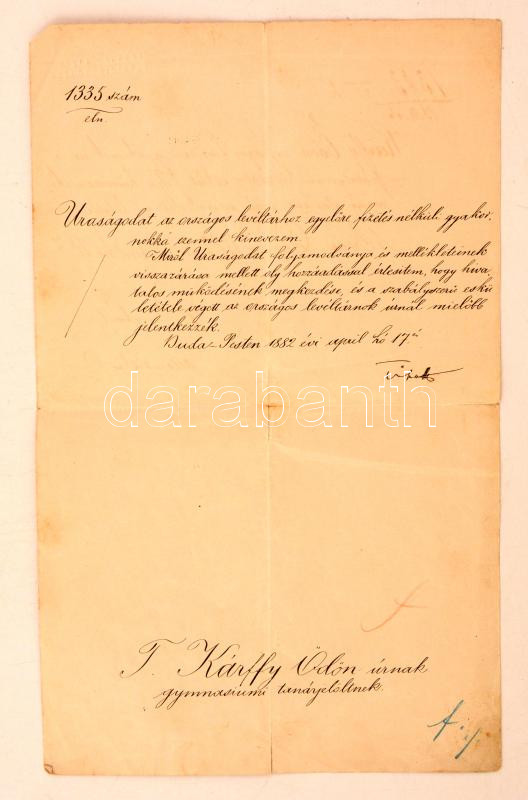 1335 szám
eln.
Uraságodat az országos levéltárhoz egyelőre fizetés nélküli gyakor-
nokká ezennel kinevezem.
Miről Uraságodat folyamodványa és mellékleteinek
visszazárása mellett oly hozzáadással értesítem, hogy hiva-
talos működésének megkezdése, és a szabályszerű eskü
letétele végett az országos levéltárnok úrnál mielőbb
jelentkezzék.
Buda-Pesten 1882 évi april hó 17.
darabanth
T. Kárffy Ödön úrnak
gymnasiumi tanárjelöltnek.